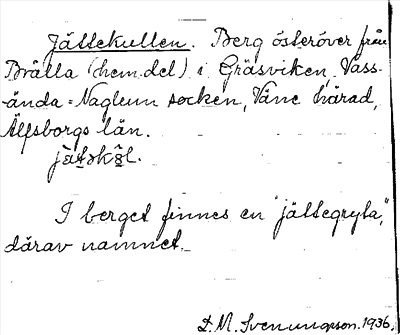 Jättekullen. Berg österöver från
Brätta (hem.del) i Gräsviken, Väss-
ända-Naglum socken, Väne härad,
Älfsborgs län.
I berget finnes en "jättegryta",
därav namnet.
D. M. Svenungsson. 1936.